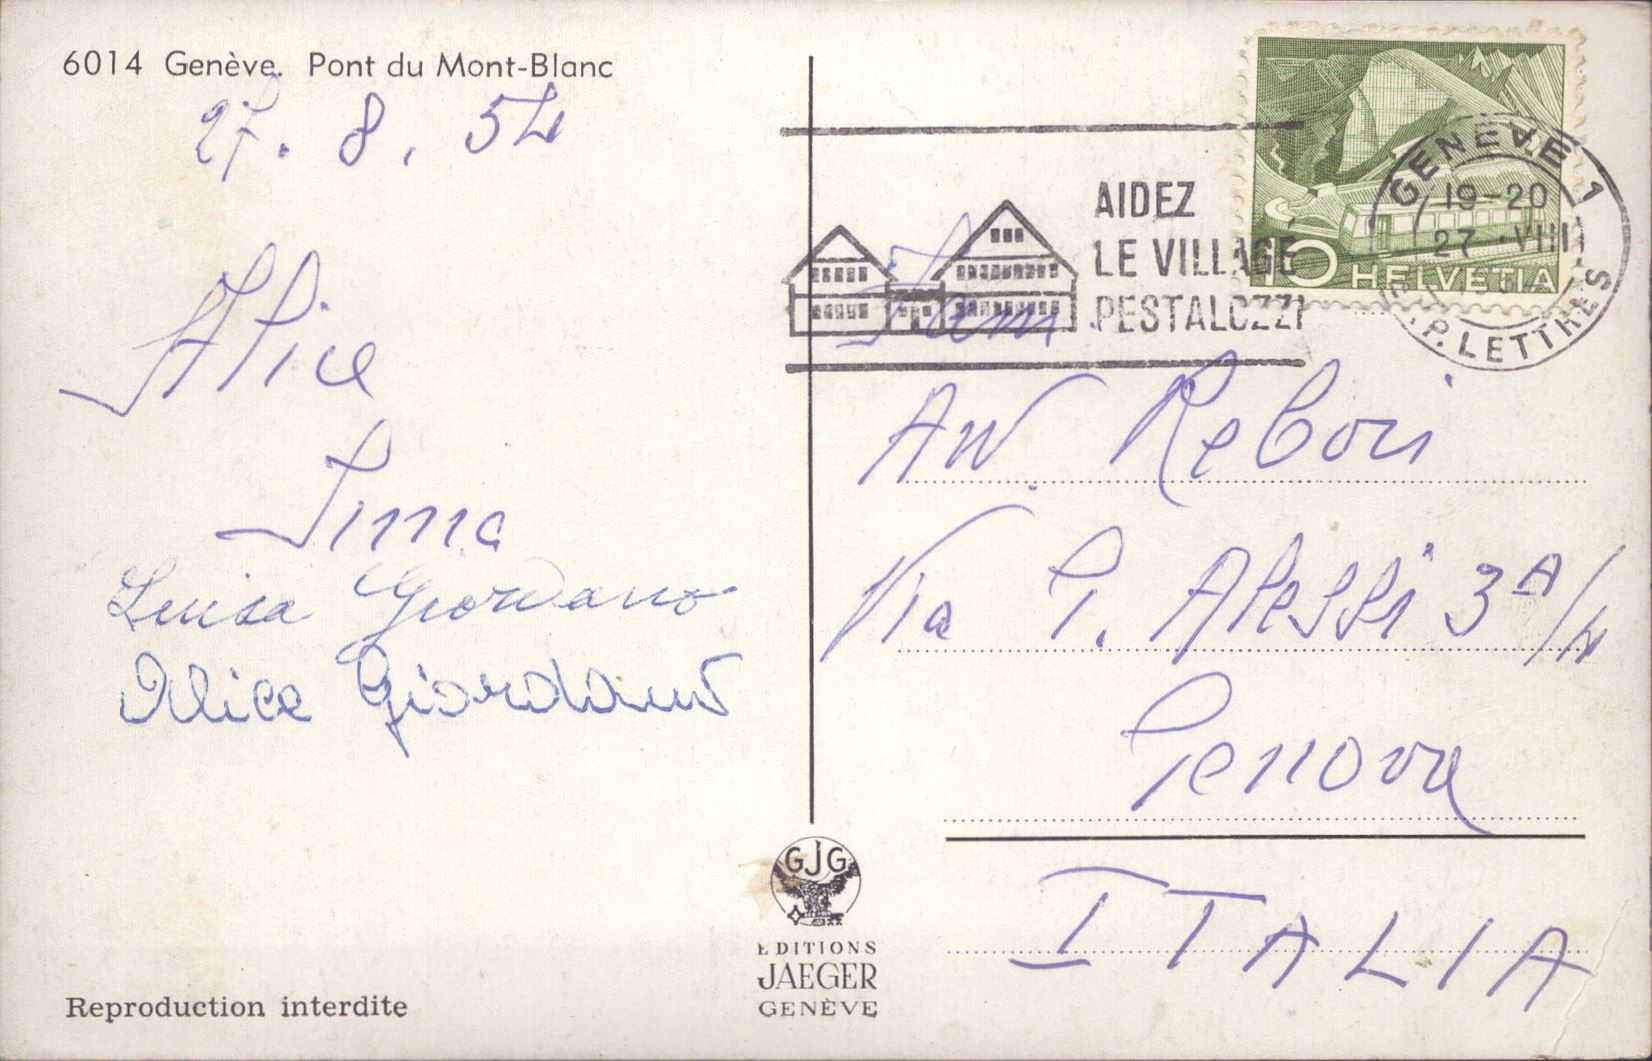 6014 Genève. Pont du Mont-Blanc
27.8.54
Alice
Luisa Giordano
Alice Giordano
Reproduction interdite
GJG
EDITIONS
JAEGER
GENÈVE
AIDEZ
LE VILLAGE
PESTALOZZI
10 HELVETIA
GENÈVE 1
19-20
27.VIII
EXP. LETTRES
Fam.
Avv. Rebori
Via G. Alessi 3A/4
Genova
ITALIA